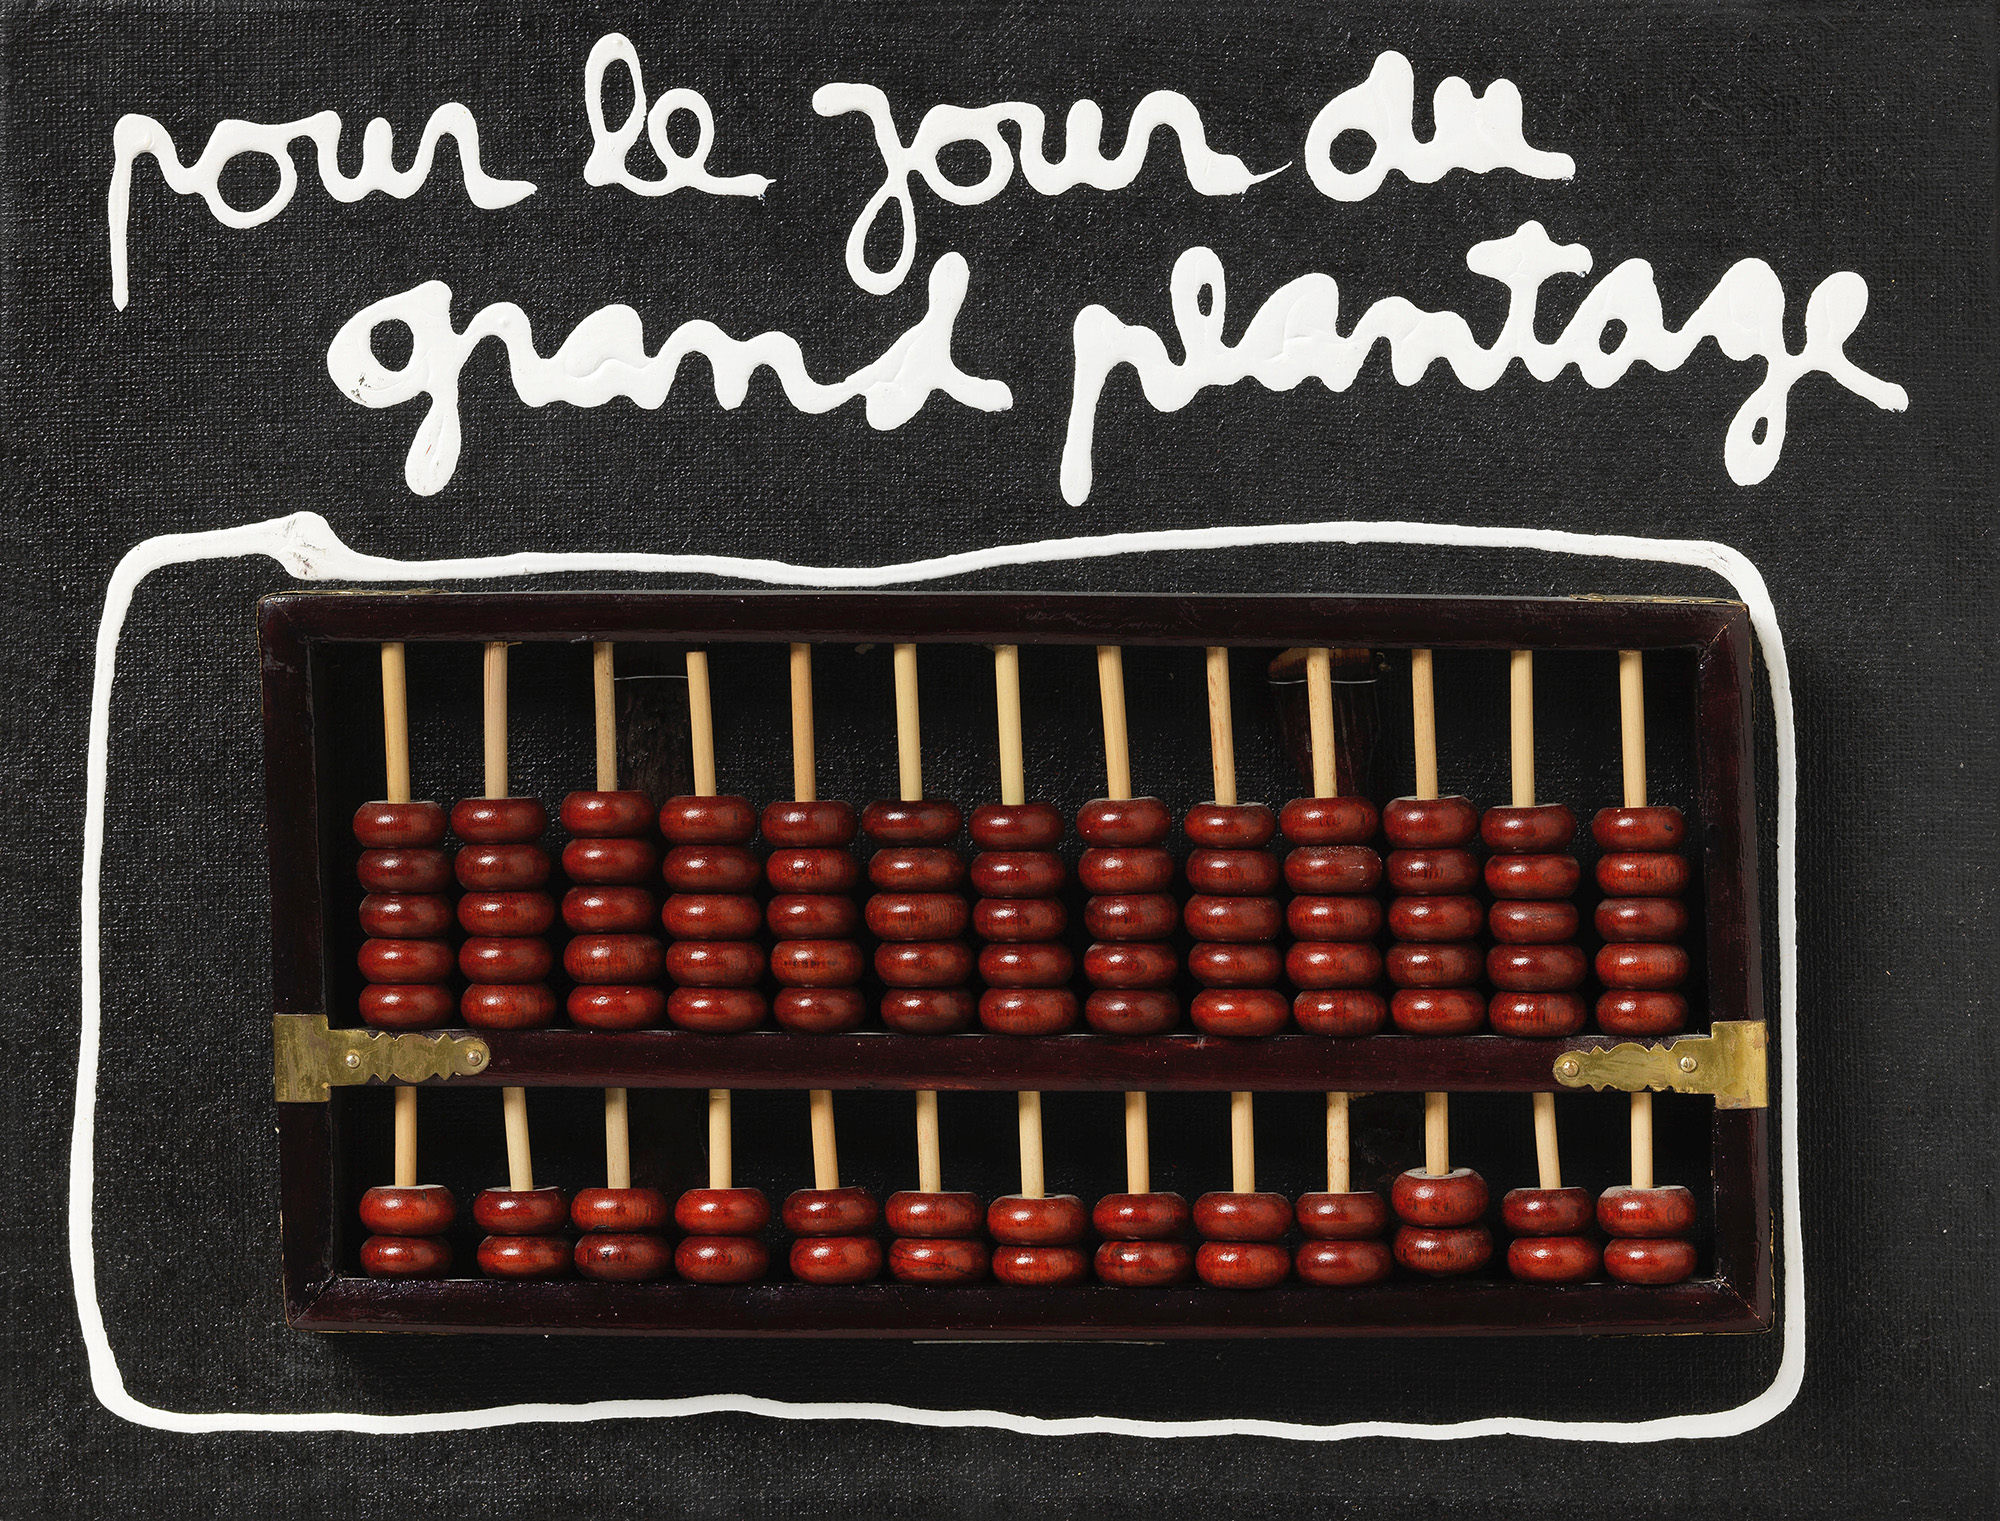 pour le jour du
grand plantage